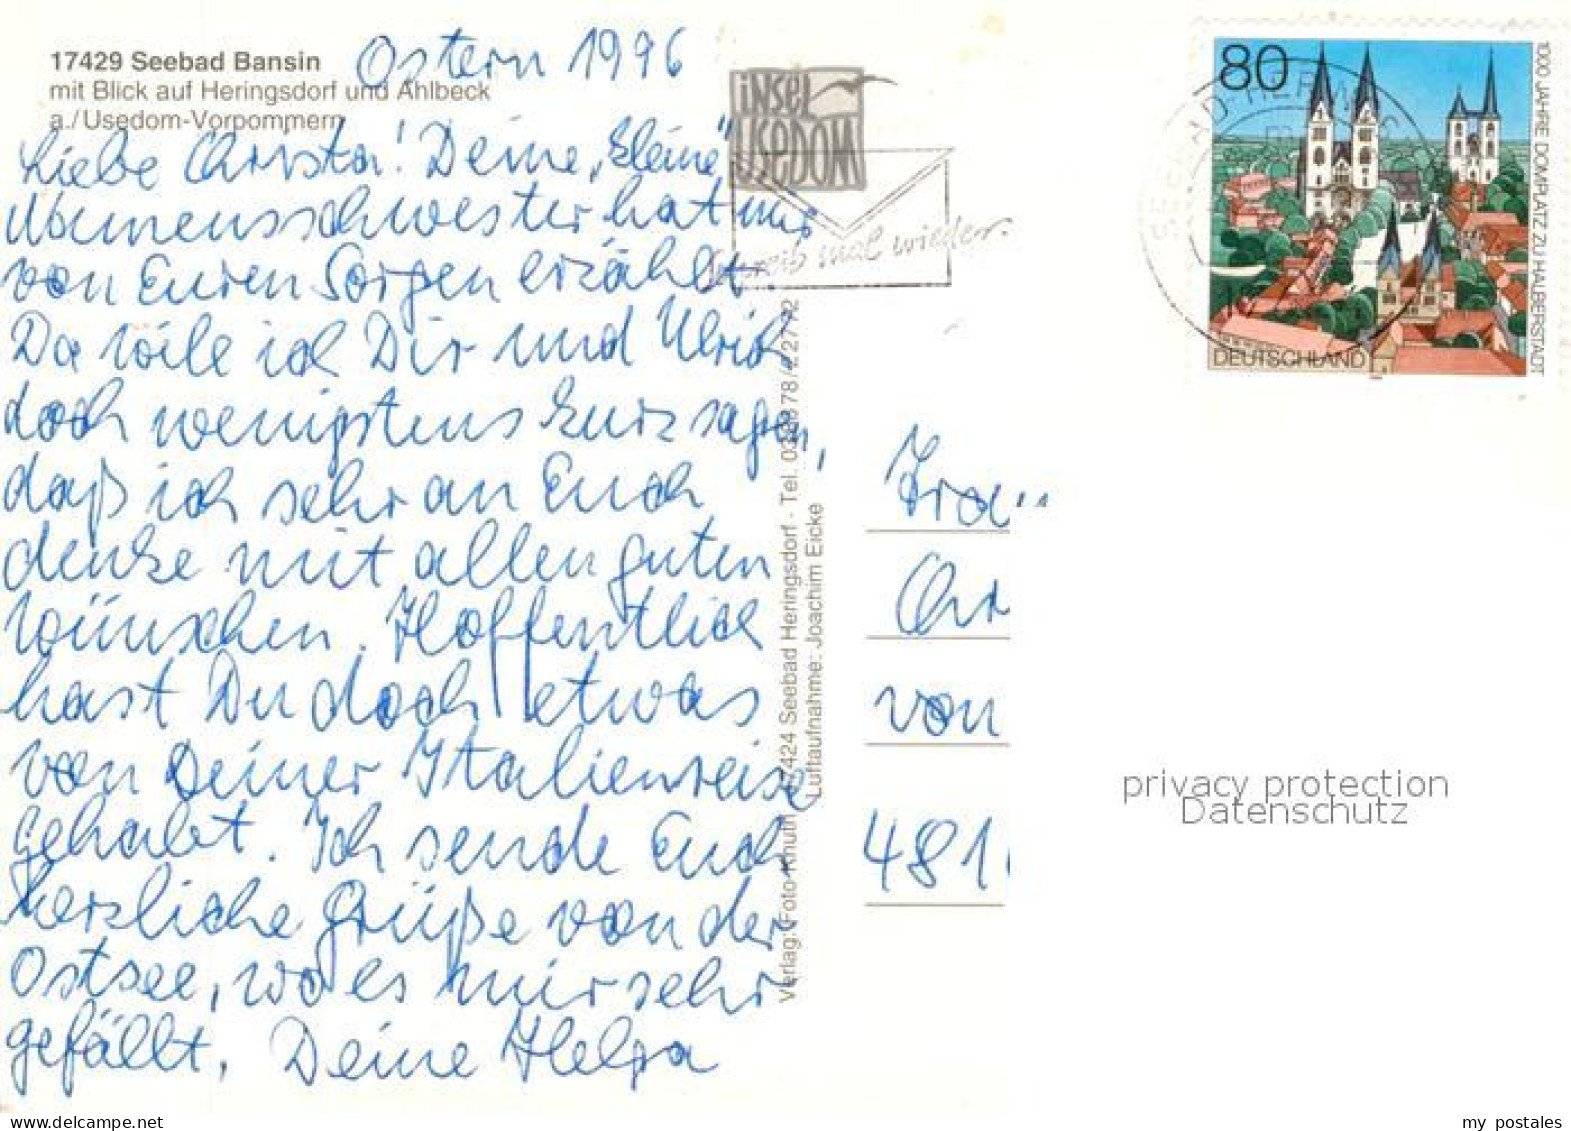 17429 Seebad Bansin
mit Blick auf Heringsdorf und Ahlbeck
a./Usedom-Vorpommern
Ostern 1996
Liebe Christa! Deine „kleine“
Namensschwester hat mir
von Euren Sorgen erzählt.
Da will ich Dir und Ulrich
doch wenigstens kurz sagen,
daß ich sehr an Euch
denke mit allen guten
Wünschen. Hoffentlich
hast Du doch etwas
von Deiner Italienreise
gehabt. Ich sende Euch
herzliche Grüße von der
Ostsee, wo es mir sehr
gefällt. Deine Helga
iNSEL
USEDOM
Schreib mal wieder.
Verlag: Foto Knuth 17424 Seebad Heringsdorf - Tel. 038378/22772
Luftaufnahme: Joachim Eicke
80
1000 JAHRE DOMPLATZ ZU HALBERSTADT
DEUTSCHLAND
SEEBAD HERINGS
Frau
Chr
von
481
privacy protection
Datenschutz
my postales